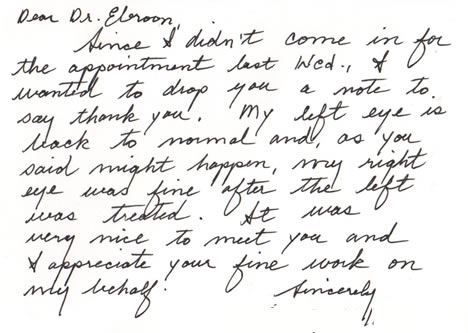 Dear Dr. Elcroon,
Since I didn't come in for
the appointment last Wed., I
wanted to drop you a note to
say thank you. My left eye is
back to normal and, as you
said might happen, my right
eye was fine after the left
was treated. It was
very nice to meet you and
I appreciate your fine work on
my behalf.
Sincerely